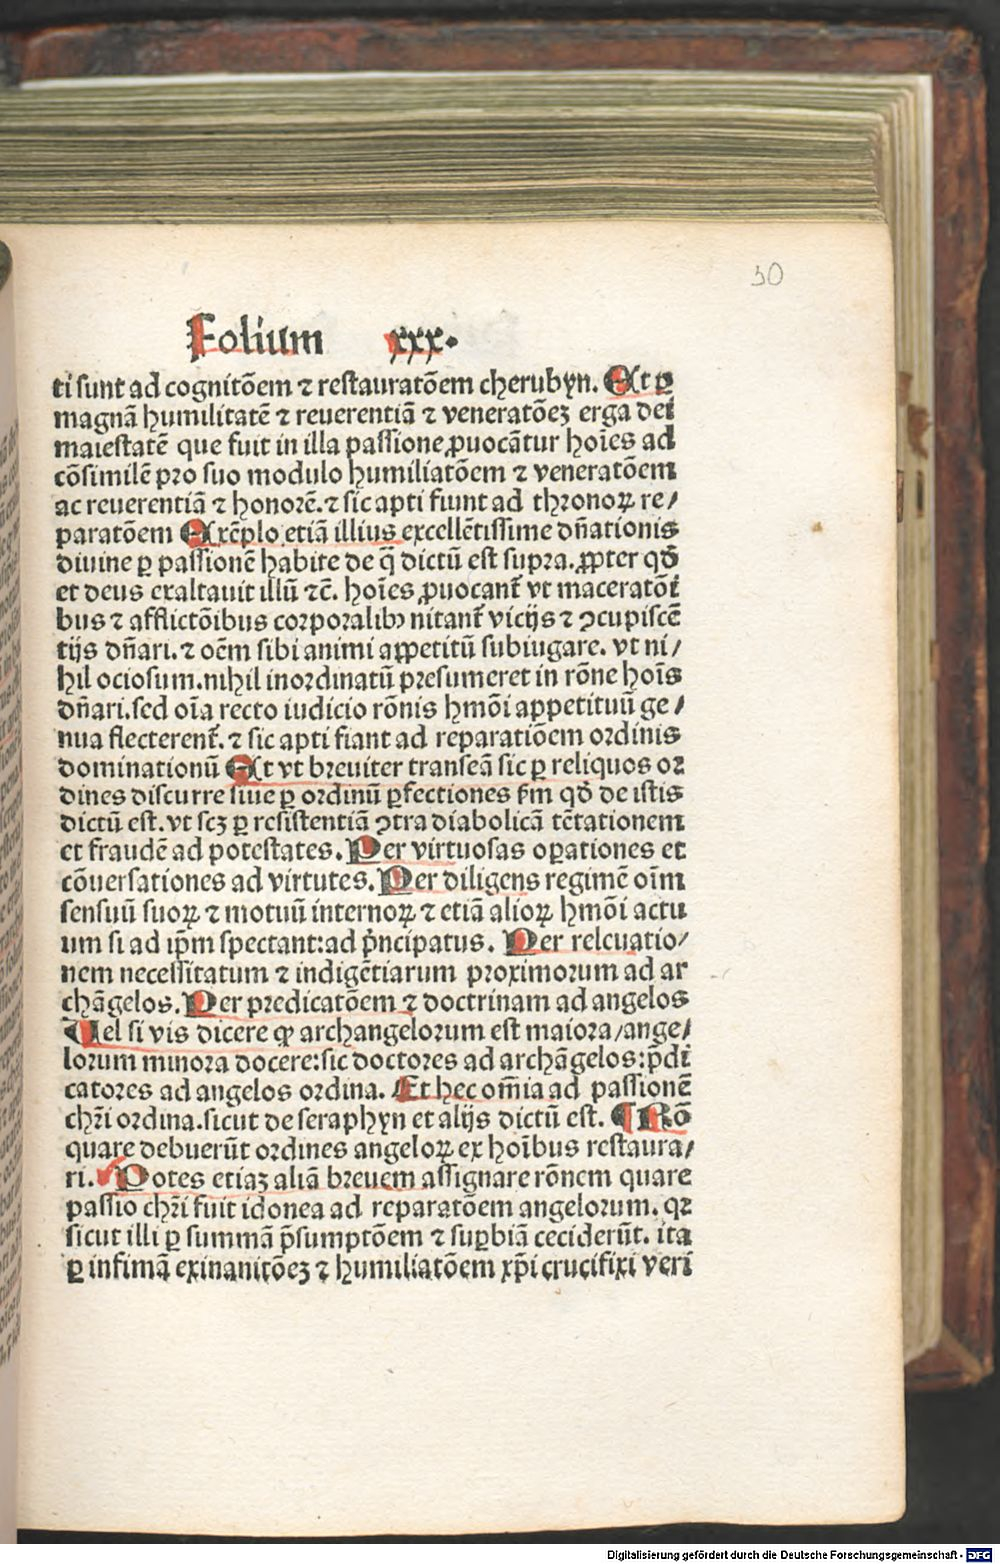 30
Folium xxx.
ti sunt ad cognitõem ⁊ restauratõem cherubyn. Et ꝑ
magnã humilitatẽ ⁊ reuerentiã ⁊ veneratõeꝫ erga dei
maiestatẽ que fuit in illa passione ꝓuocãtur hoĩes ad
cõsimilẽ pro suo modulo humiliatõem ⁊ veneratõem
ac reuerentiã ⁊ honorẽ. ⁊ sic apti fiunt ad thronoꝝ re/
paratõem Exẽplo etiã illius excellẽtissime dñationis
diuine ꝑ passionẽ habite de q̃ dictũ est supra. ꝓpter qđ
et deus exaltauit illũ ⁊c̃. hoĩes ꝓuocant᷑ vt maceratõĩ
bus ⁊ afflictõibus corporalibꝰ nitant᷑ vicijs ⁊ ꝯcupiscẽ
tijs dñari. ⁊ oẽm sibi animi appetitũ subiugare. vt ni/
hil ociosum. nihil inordinatũ presumeret in rõne hoĩs
dñari. sed oĩa recto iudicio rõnis hmõi appetituũ ge/
nua flecterent᷑. ⁊ sic apti fiant ad reparatiõem ordinis
dominationũ Et vt breuiter transeã sic ꝑ reliquos or
dines discurre siue ꝑ ordinũ ꝑfectiones ẜm qđ de istis
dictũ est. vt scꝫ ꝑ resistentiã ꝯtra diabolicã tẽtationem
et fraudẽ ad potestates. Per virtuosas oꝑationes et
cõuersationes ad virtutes. Per diligens regimẽ oĩm
sensuũ suoꝝ ⁊ motuũ internoꝝ ⁊ etiã alioꝝ hmõi actu
um si ad ip̃m spectant: ad p̃ncipatus. Per releuatio/
nem necessitatum ⁊ indigẽtiarum proximorum ad ar
chãgelos. Per predicatõem ⁊ doctrinam ad angelos
Uel si vis dicere ꝙ archangelorum est maiora/ange/
lorum minora docere: sic doctores ad archãgelos: p̃di
catores ad angelos ordina. Et hec om̃ia ad passionẽ
chr̃i ordina. sicut de seraphyn et alijs dictũ est. ¶ Rõ
quare debuerũt ordines angeloꝝ ex hoĩbus restaura/
ri. Potes etiaꝫ aliã breuem assignare rõnem quare
passio chr̃i fuit idonea ad reparatõem angelorum. qꝛ
sicut illi ꝑ summã p̃sumptõem ⁊ suꝑbiã ceciderũt. ita
ꝑ infimã exinanitõeꝫ ⁊ humiliatõem xp̃i crucifixi veri
Digitalisierung gefördert durch die Deutsche Forschungsgemeinschaft - DFG